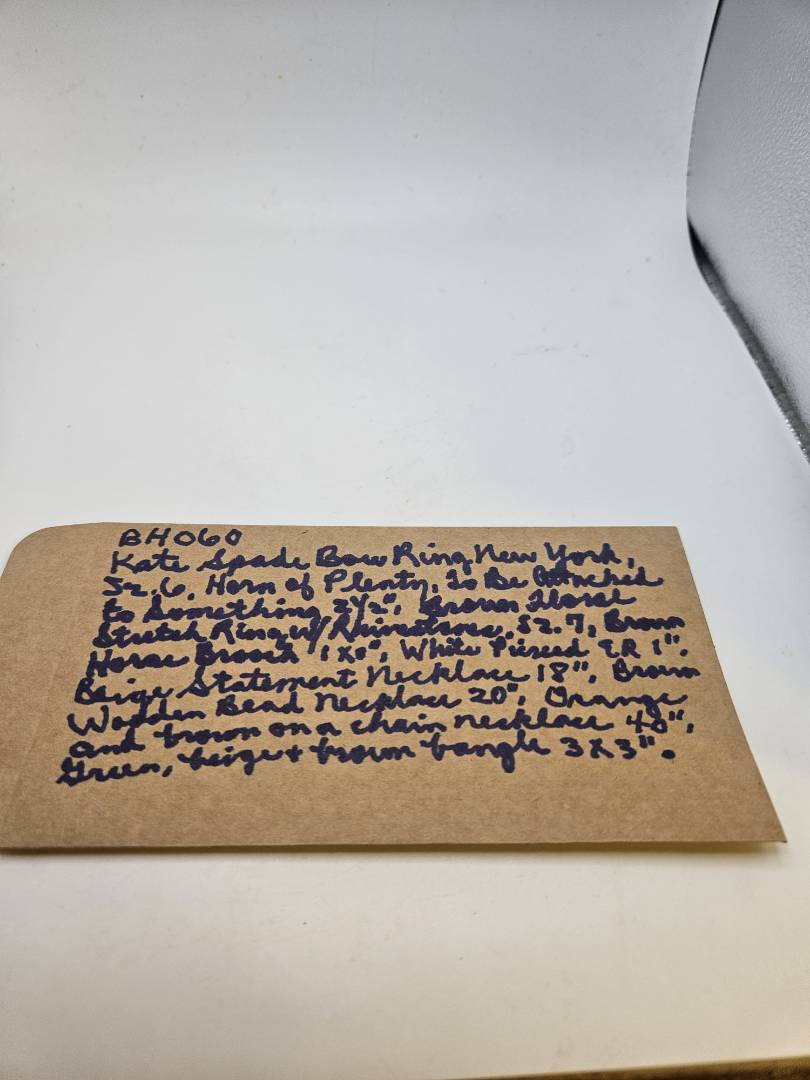 BH060
Kate Spade Bow Ring New York,
Sz. 6, Horn of Plenty, To Be Attached
to Something 2 1/2", Brown Floral
Stretch Ring w/ Rhinestones, Sz. 7, Brown
Horse Brooch 1 X 1", White Pierced ER 1",
Beige Statement Necklace 18", Brown
Wooden Bead Necklace 20", Orange
and brown on a chain necklace 40",
Green, beige + brown bangle 3 X 3".